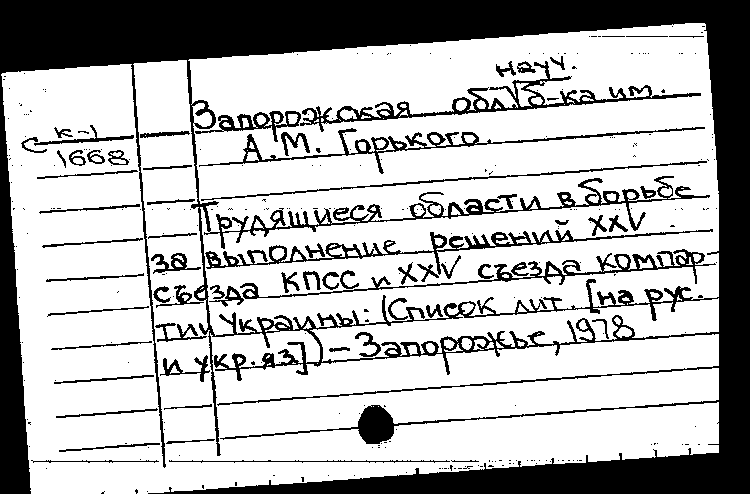 науч.
Запорожская обл√б-ка им.
А.М. Горького.
С к-1
1668
Трудящиеся области в борьбе
за выполнение решений XXV
съезда КПСС и XXV съезда компар-
тии Украины: (Список лит. [на рус.
и укр. яз.]) – Запорожье, 1978